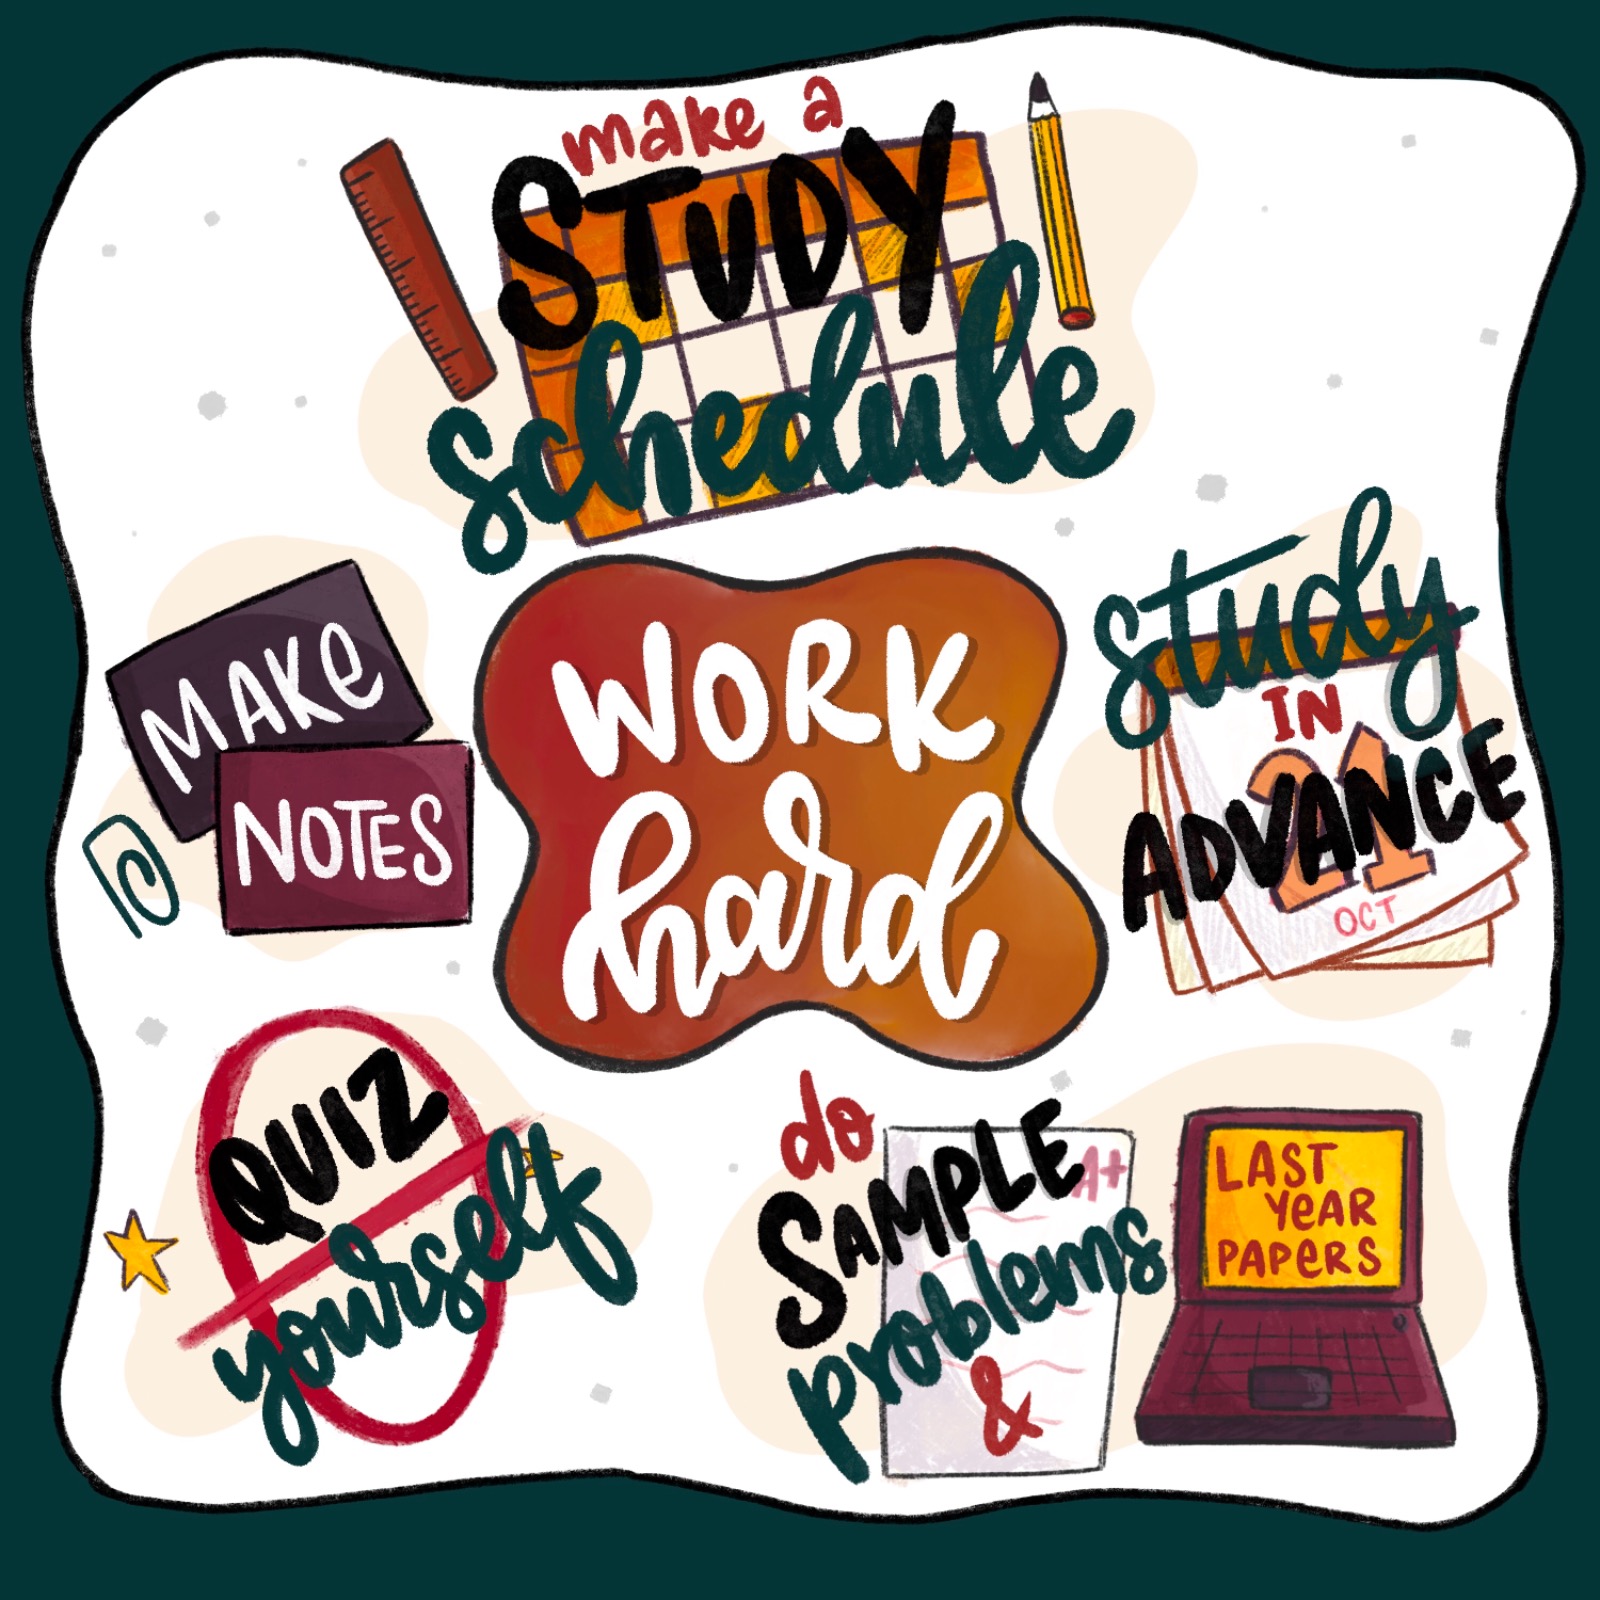 make a
STUDY
schedule
MAKE
NOTES
WORK
hard
study
IN
ADVANCE
21
OCT
QUIZ
yourself
do
SAMPLE
A+
problems
&
LAST
YEAR
PAPERS